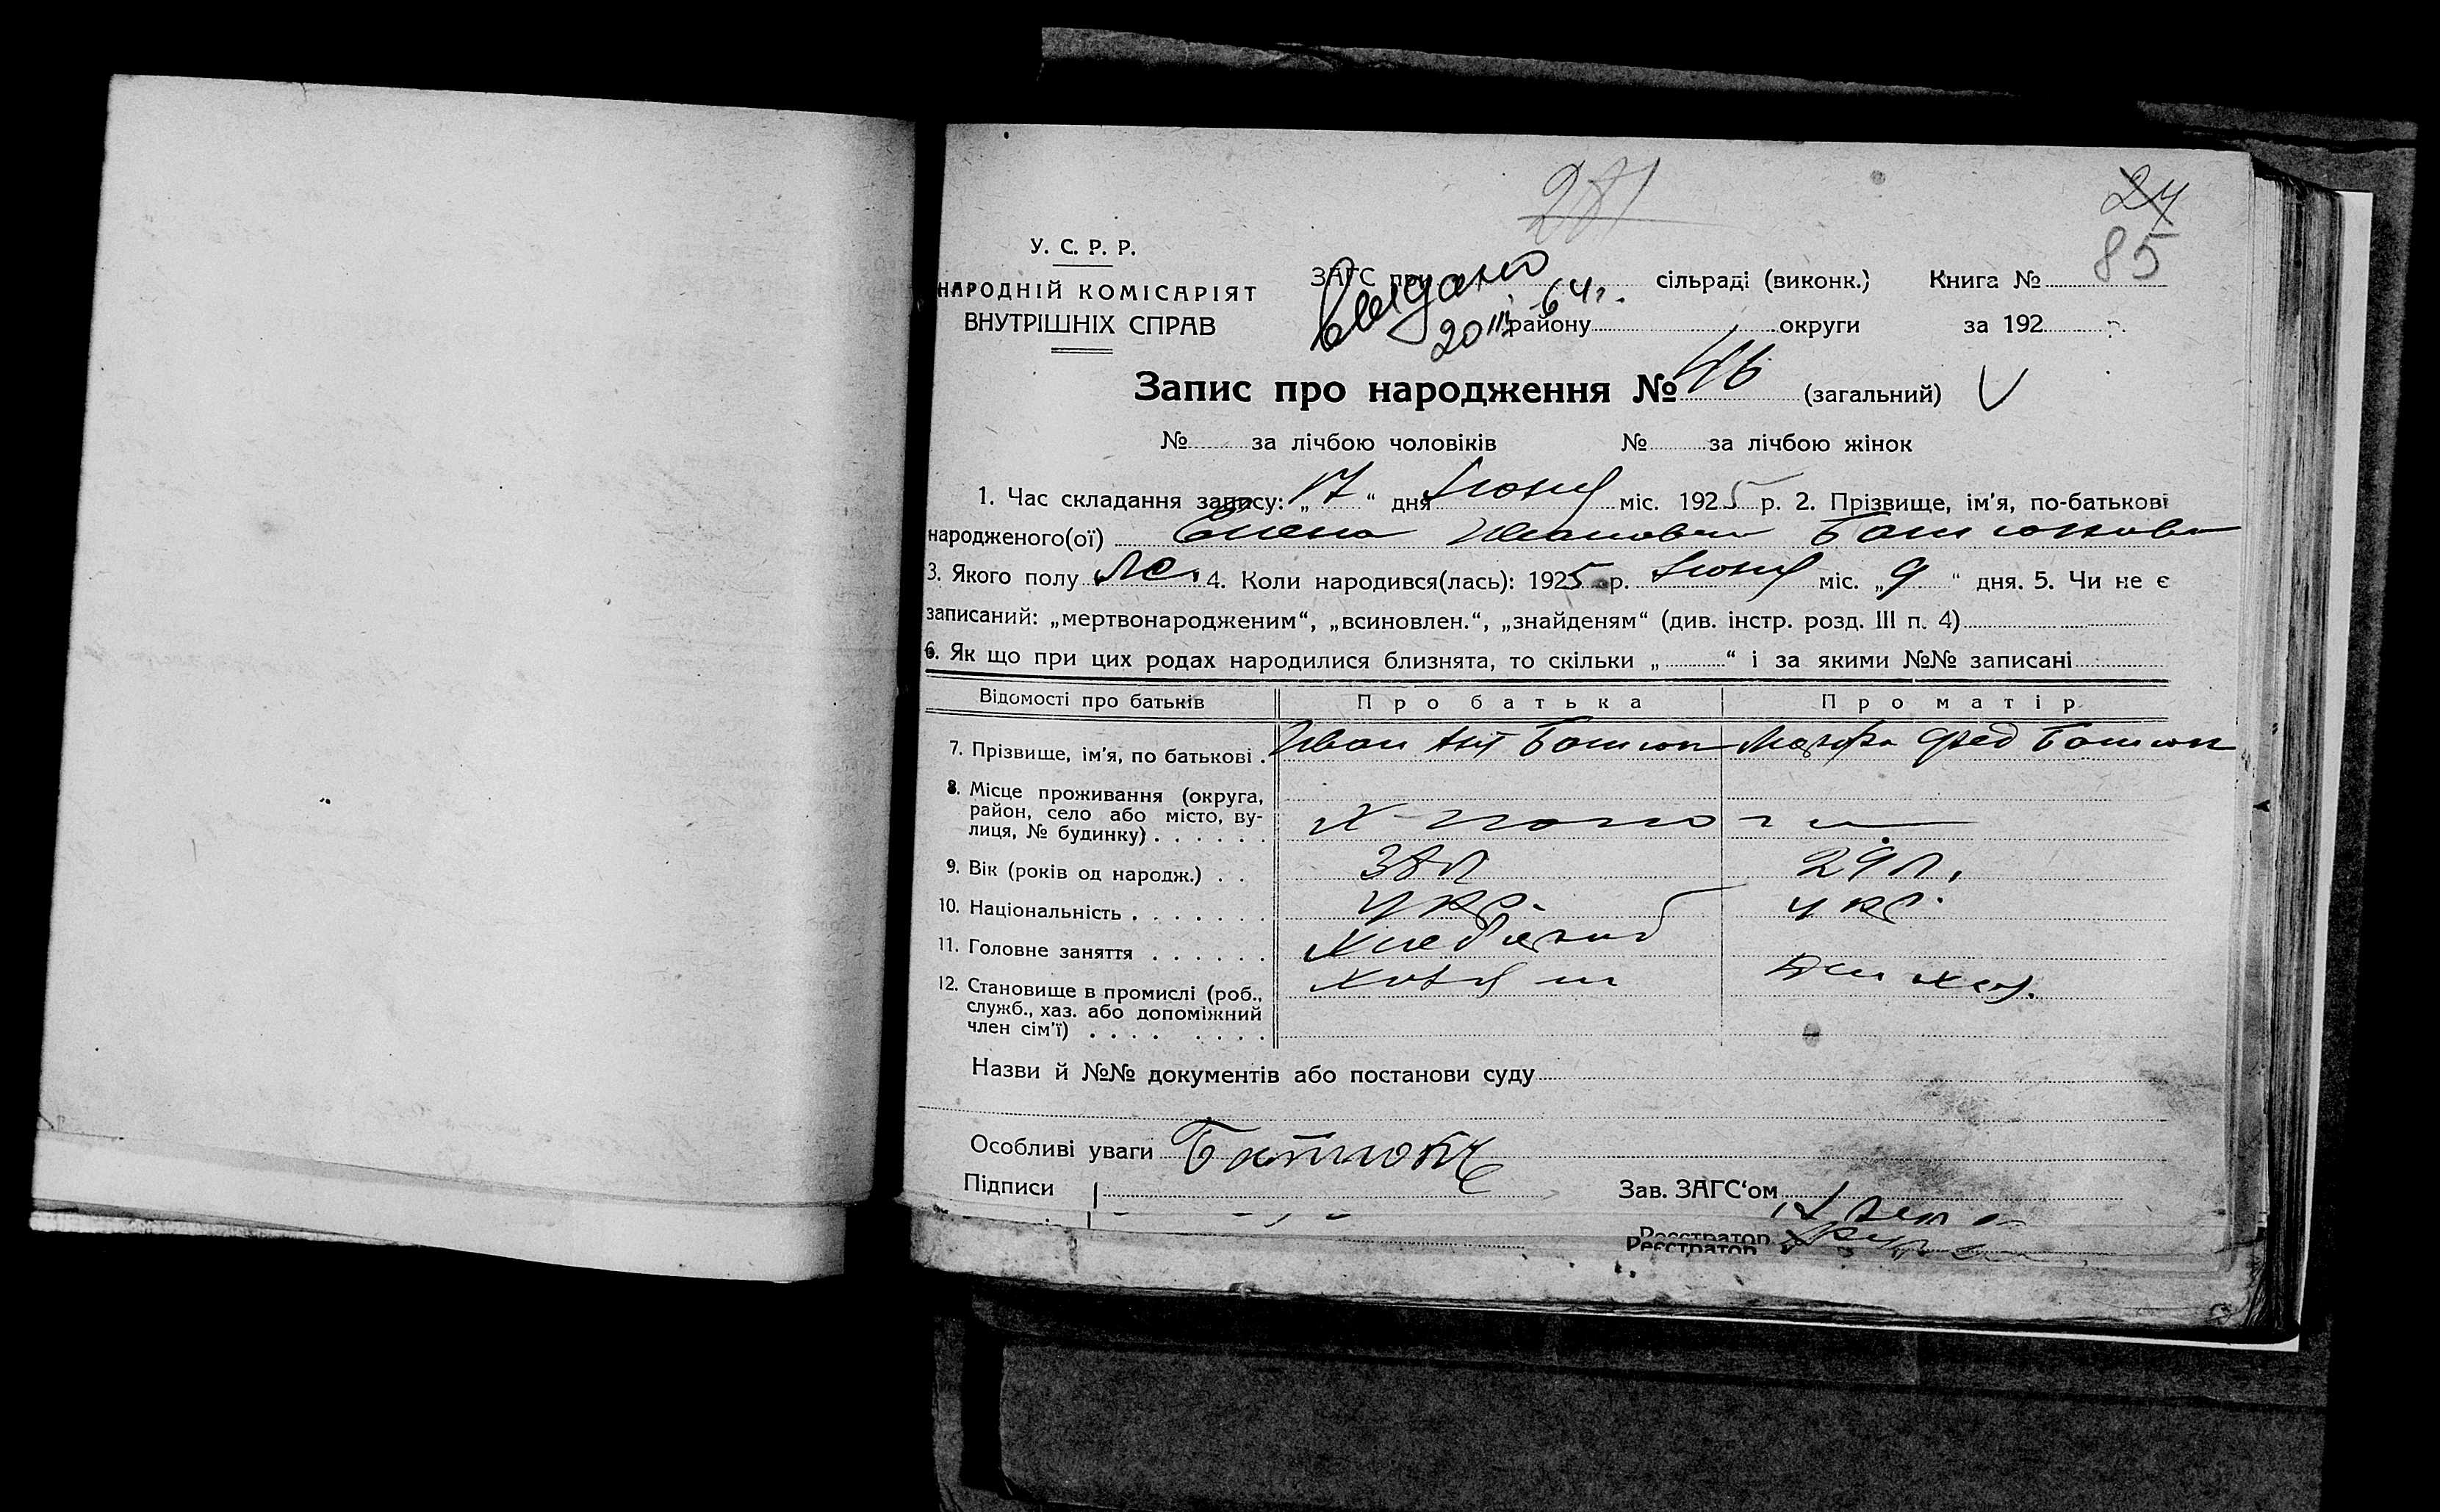 281
24
85
У. С. Р. Р.
НАРОДНІЙ КОМІСАРІЯТ
ВНУТРІШНІХ СПРАВ
ЗАГС при сільраді (виконк.) Книга №
Выдано
20 III 64 г.
району округи за 192 р.
Запис про народження № 46 (загальний) V
№ за лічбою чоловіків № за лічбою жінок
1. Час складання запису: „17“ дня Июня міс. 1925 р. 2. Прізвище, ім’я, по-батькові
народженого(ої) Елена Ивановна
3. Якого полу ж. 4. Коли народився(лась): 1925 р. Июня міс. „9“ дня. 5. Чи не є
записаний: „мертвонародженим“, „всиновлен.“, „знайденям“ (див. інстр. розд. III п. 4)
6. Як що при цих родах народилися близнята, то скільки „ “ і за якими №№ записані
Відомості про батьків Про батька Про матір
7. Прізвище, ім’я, по батькові . Иван Ант Марфа Фед
8. Місце проживання (округа,
район, село або місто, ву-
лиця, № будинку) . . . . . . Х
9. Вік (років од народж.) . . 38 л 29 л.
10. Національність . . . . . . . укр. укр.
11. Головне заняття . . . . . . Хлебороб
12. Становище в промислі (роб.,
служб., хаз. або допоміжний
член сім’ї) . . . . . . . . Хозяин
Назви й №№ документів або постанови суду
Особливі уваги
Підписи Зав. ЗАГС‘ом
Реєстратор
Реєстратор